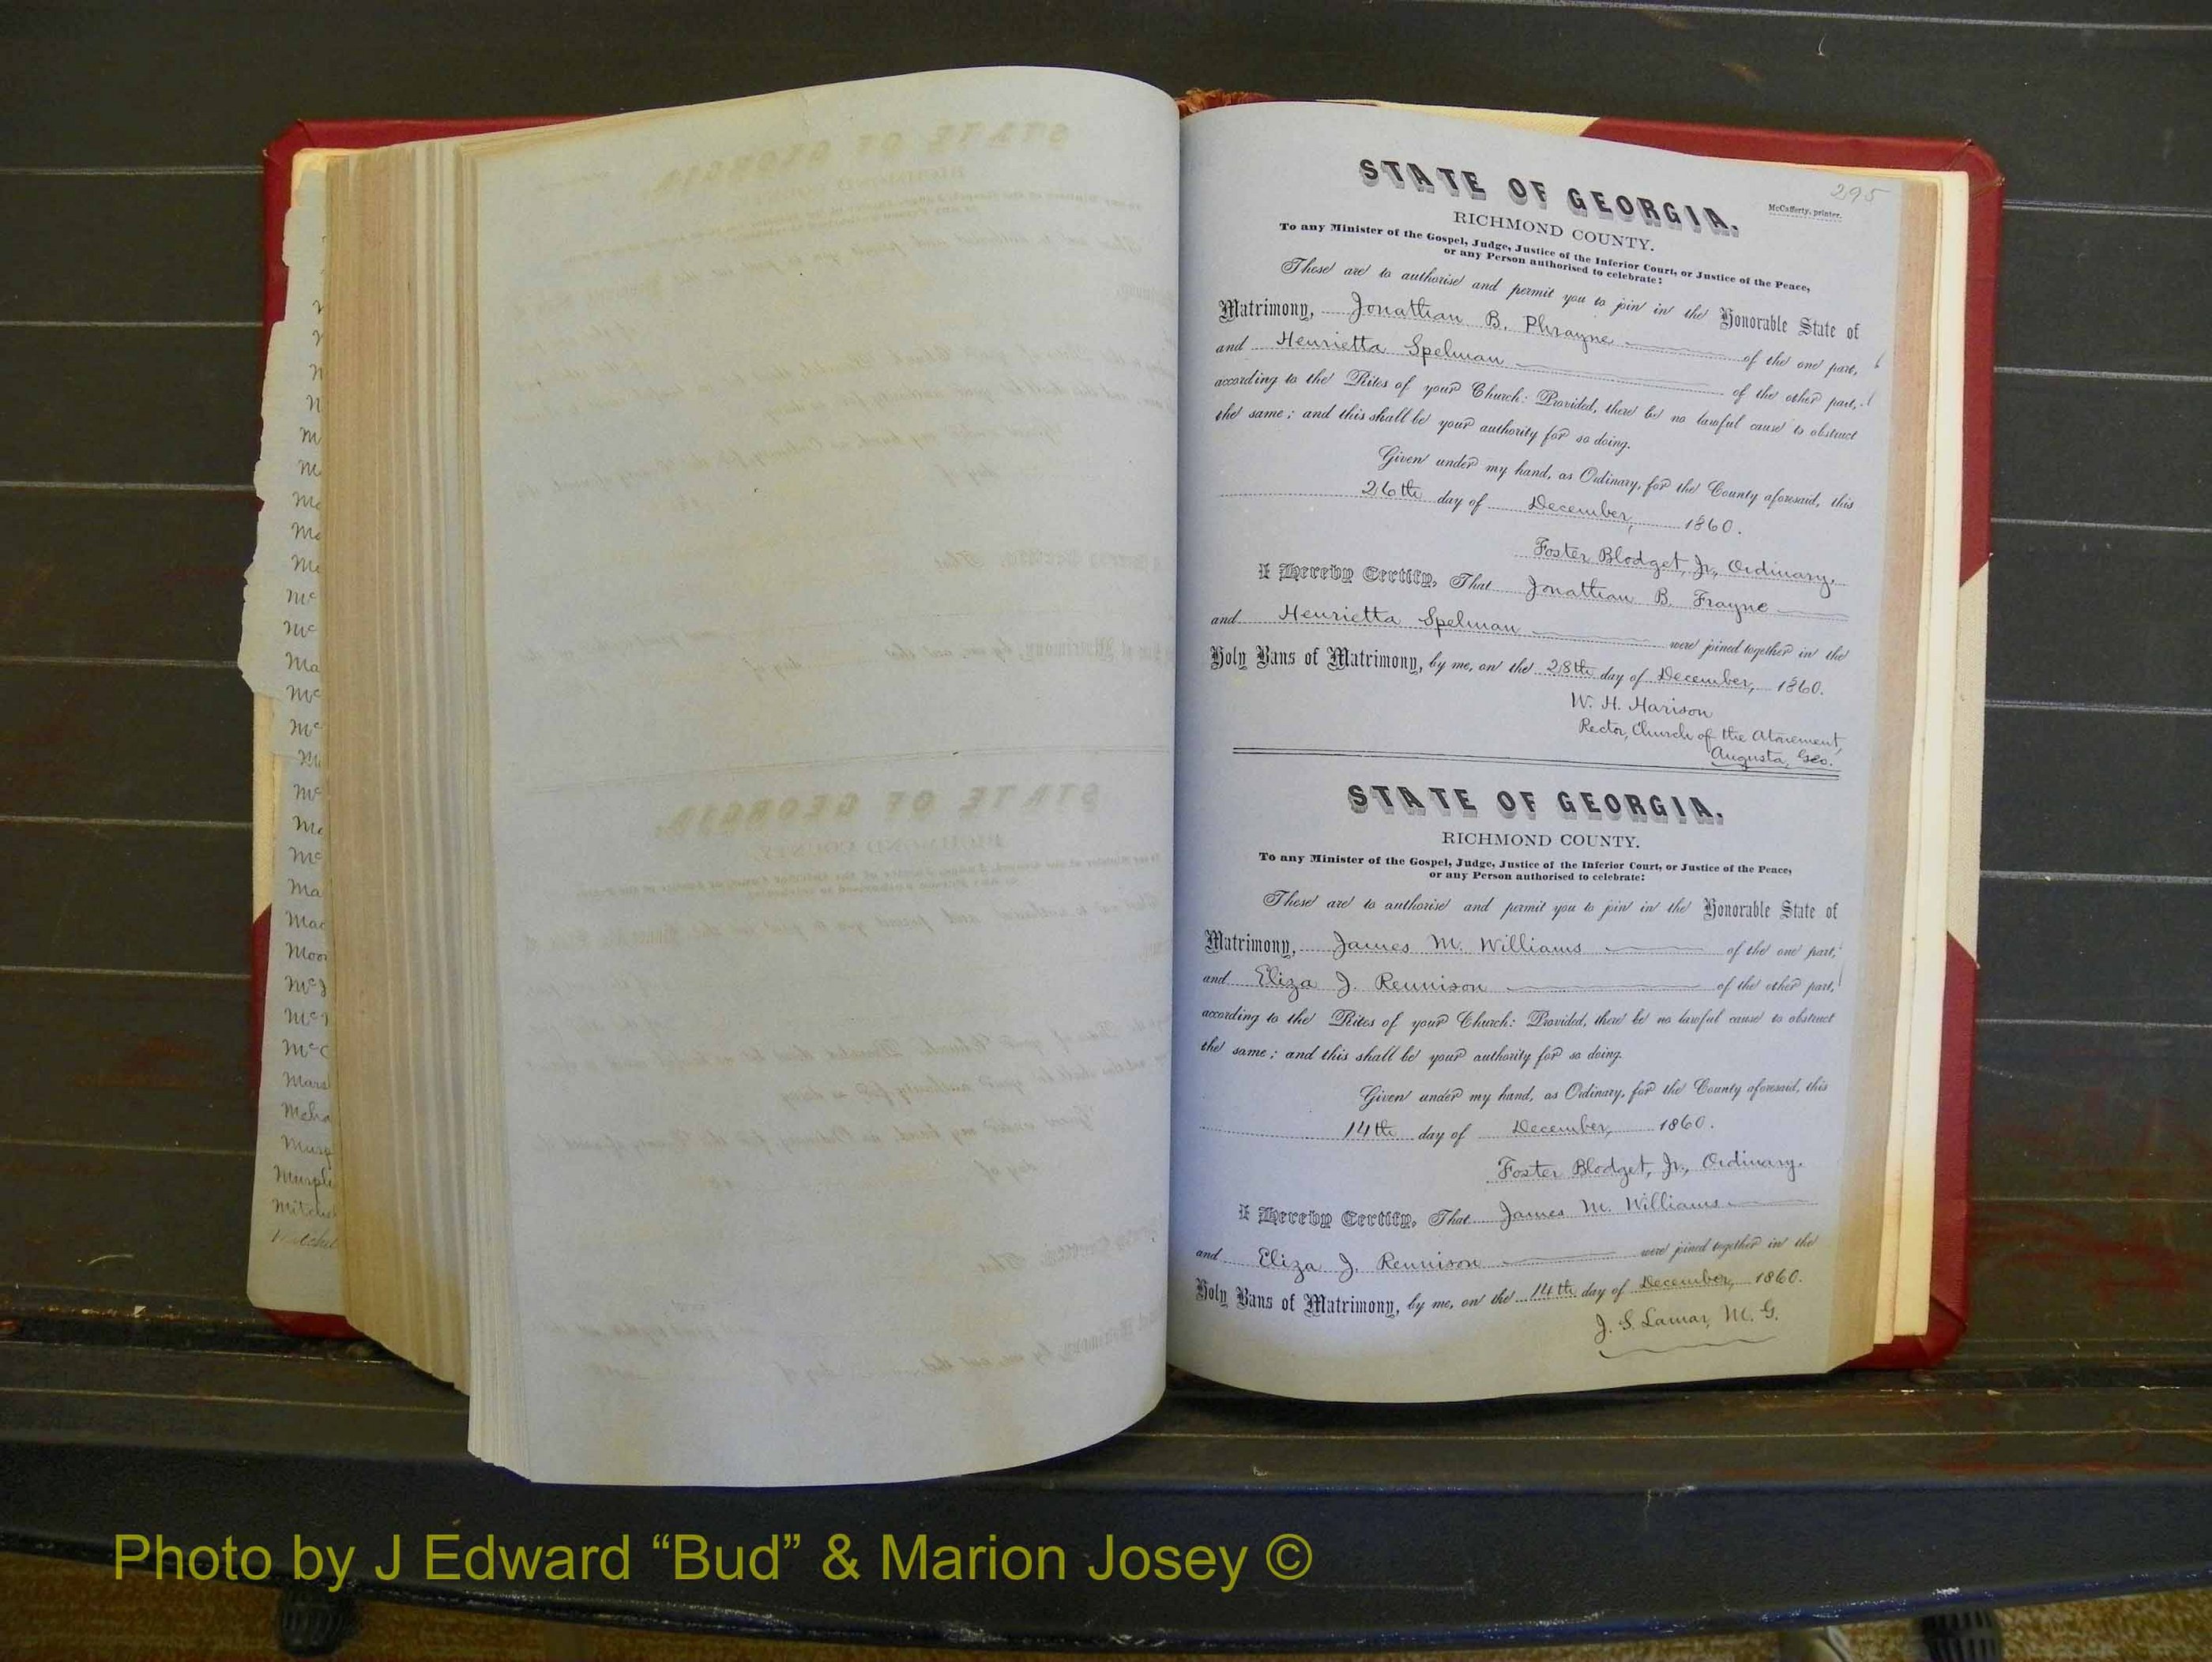 295
STATE OF GEORGIA.
McCafferty, printer.
RICHMOND COUNTY.
To any Minister of the Gospel, Judge, Justice of the Inferior Court, or Justice of the Peace,
or any Person authorised to celebrate:
These are to authorise and permit you to join in the Honorable State of
Matrimony, Jonathan B. Phrayne of the one part,
and Henrietta Spelman of the other part,
according to the Rites of your Church: Provided, there be no lawful cause to obstruct
the same; and this shall be your authority for so doing.
Given under my hand, as Ordinary, for the County aforesaid, this
26th day of December, 1860.
Foster Blodget, Jr., Ordinary.
I Hereby Certify, That Jonathan B. Frayne
and Henrietta Spelman were joined together in the
Holy Bans of Matrimony, by me, on the 28th day of December, 1860.
W. H. Harison
Rector, Church of the Atonement,
Augusta, Geo.
STATE OF GEORGIA.
RICHMOND COUNTY.
To any Minister of the Gospel, Judge, Justice of the Inferior Court, or Justice of the Peace,
or any Person authorised to celebrate:
These are to authorise and permit you to join in the Honorable State of
Matrimony, James M. Williams of the one part,
and Eliza J. Rennison of the other part,
according to the Rites of your Church: Provided, there be no lawful cause to obstruct
the same; and this shall be your authority for so doing.
Given under my hand, as Ordinary, for the County aforesaid, this
14th day of December, 1860.
Foster Blodget, Jr., Ordinary.
I Hereby Certify, That James M. Williams
and Eliza J. Rennison were joined together in the
Holy Bans of Matrimony, by me, on the 14th day of December, 1860.
J. S. Lamar, M. G.
Photo by J Edward “Bud” & Marion Josey ©